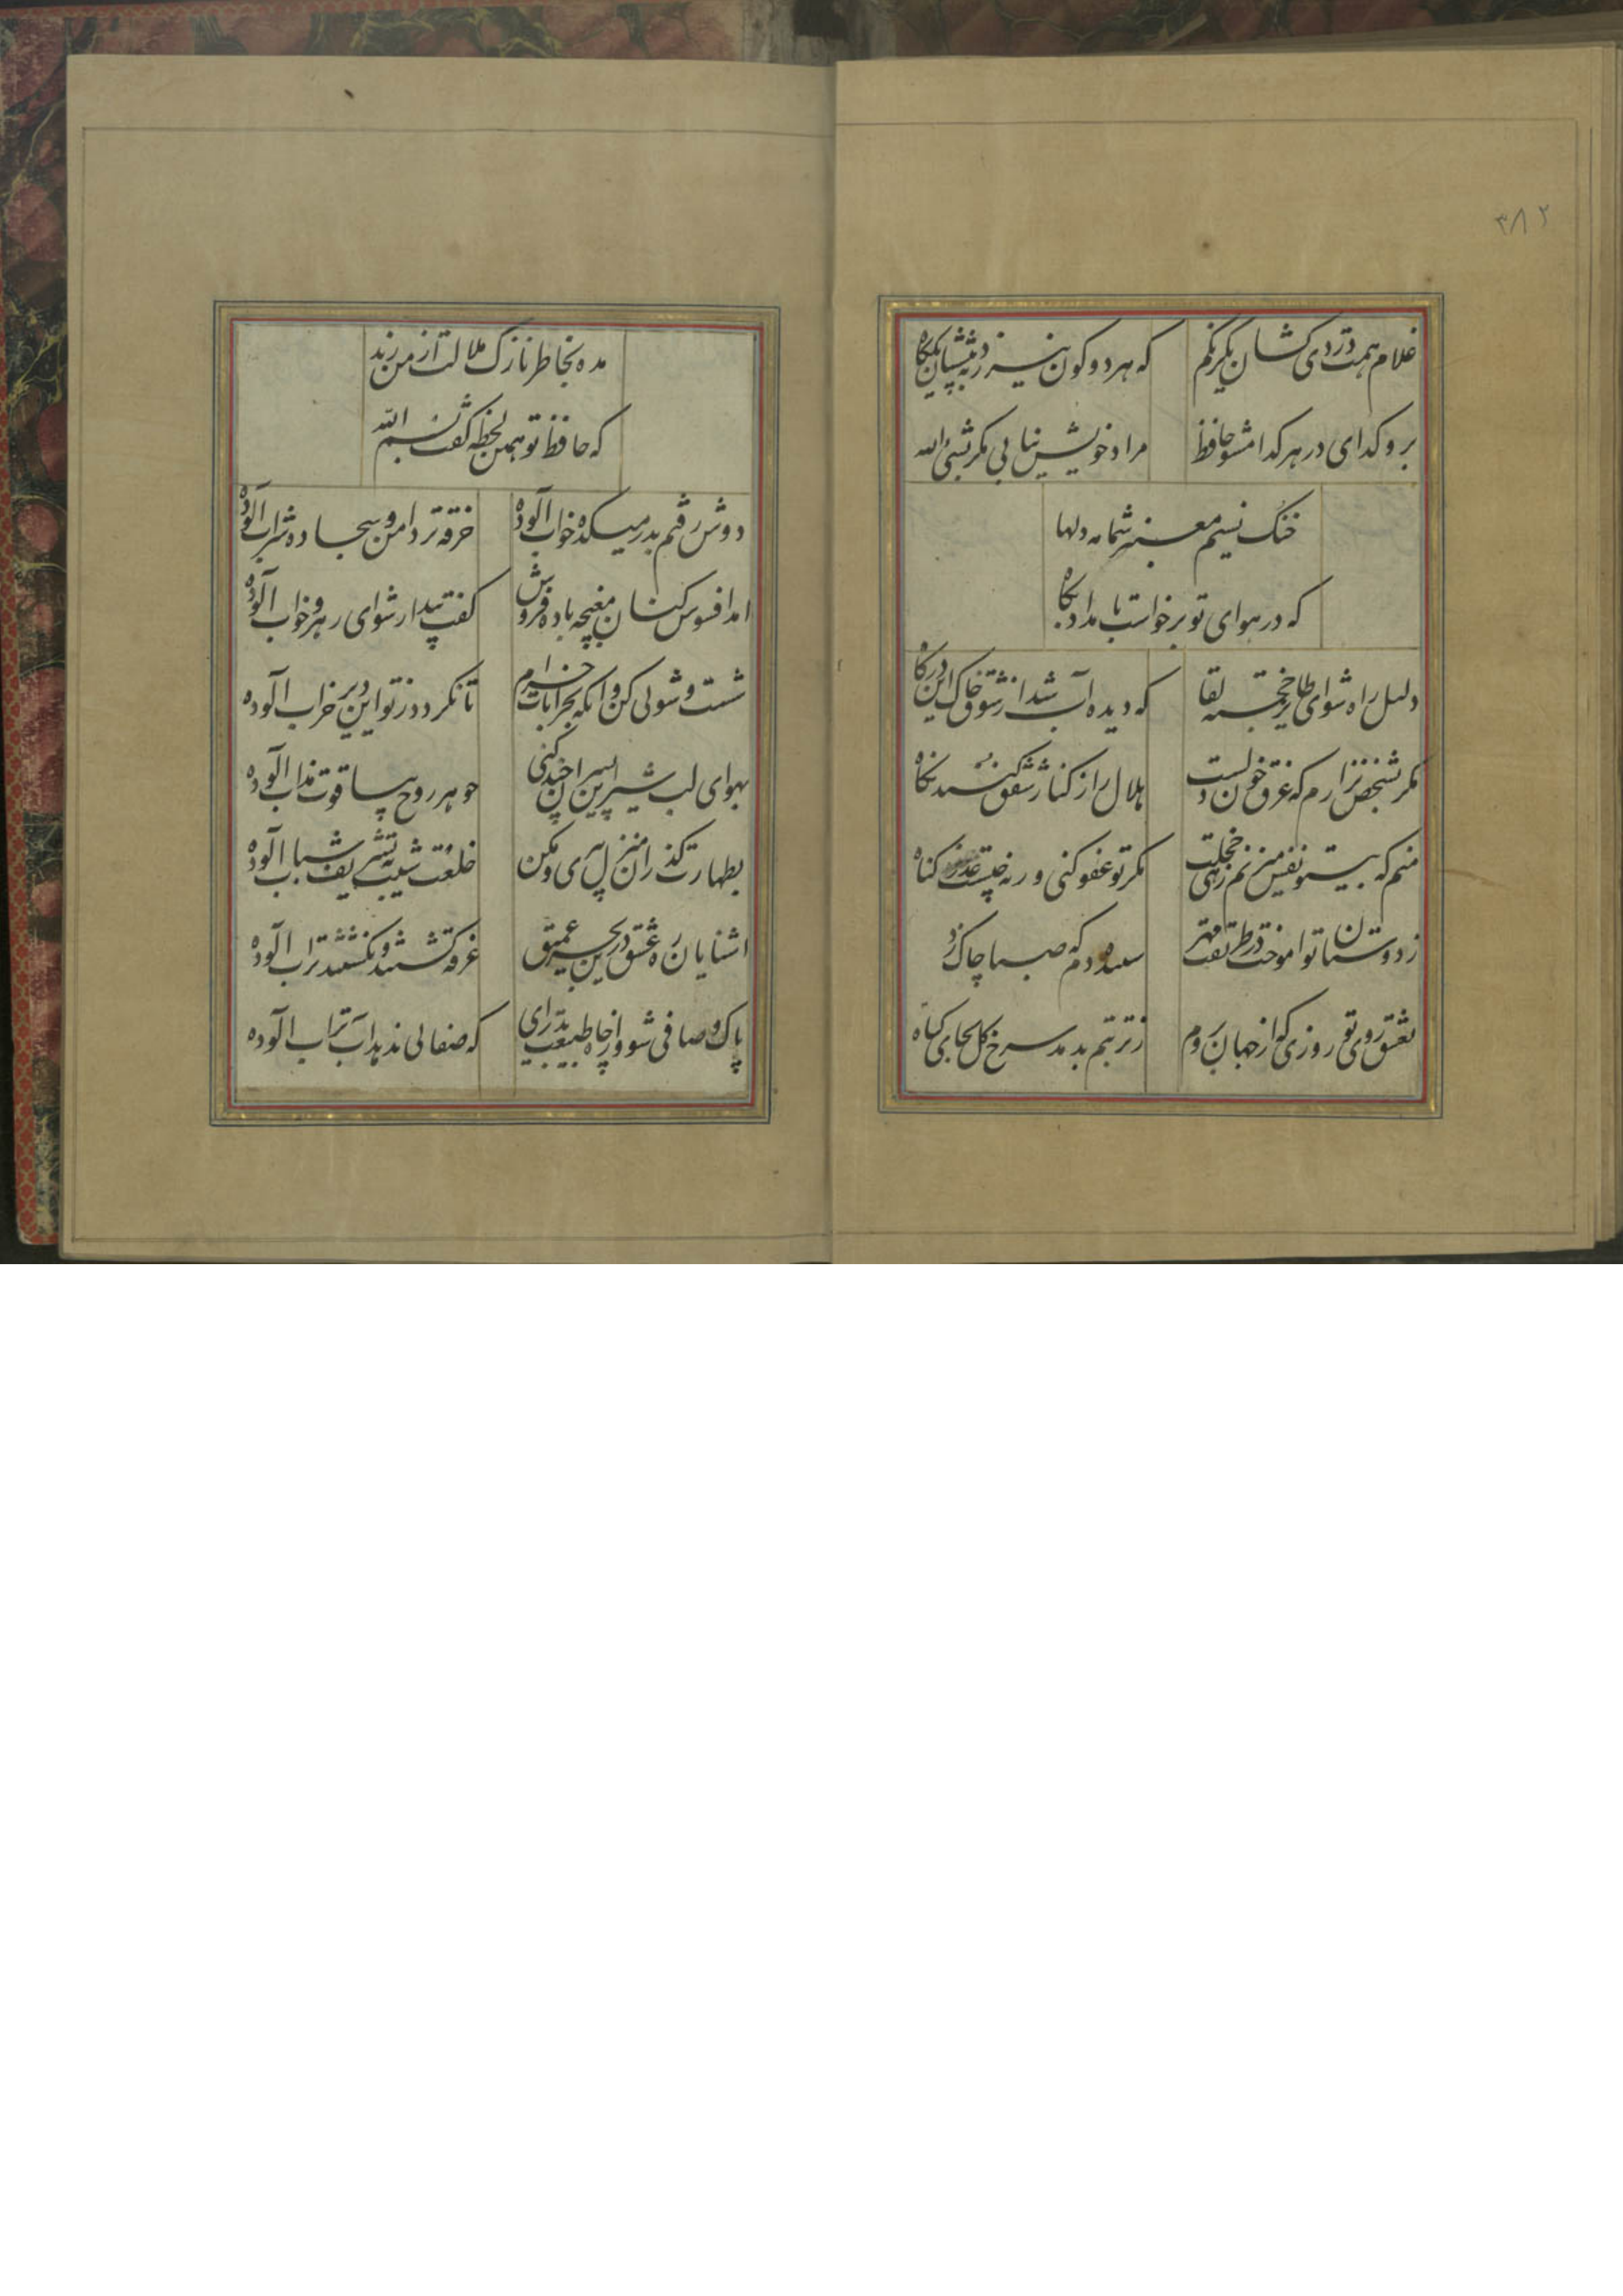 ۳۸۲
غلام همت دردی کشان یکرنگم که هر دو کون نیرزد به پیششان یک کاه
برو گدای در هر گدا مشو حافظ مراد خویش نیابی مگر بشیئ الله
خنک نسیم معنبر شمامه دلها
که در هوای تو برخواست بامداد پگاه
دلیل راه شو ای طایر خجسته لقا که دیده آب شد از شوق خاک این درگاه
مگر شخص نزارم که غرق خون دلست هلال را ز کنار شفق کنند نگاه
منم که بیتو نفس میزنم زهی خجلت مگر تو عفو کنی ورنه چیست عذر گناه
ز دوستان تو اموخت در طریقت مهر سپیده دم که صبا چاک زد
بعشق روی تو روزی که از جهان بروم ز تربتم بدمد سرخ گل بجای گیاه
مده بخاطر نازک ملالت از من زند
که حافظ تو همین لحظه گفت بسم الله
دوش رفتم بدر میکده خواب آلوده خرقه تر دامن و سجاده شراب آلوده
امد افسوس کنان مغبچه باده فروش گفت بیدار شو ای رهرو خواب آلوده
شست و شوئی کن و انگه بخرابات خرام تا نگردد ز تو این دیر خراب آلوده
بهوای لب شیرین پسران چند کنی جوهر روح بیاقوت مذاب آلوده
بطهارت گذران منزل پیری و مکن خلعت شیب بتشریف شباب آلوده
اشنایان ره عشق درین بحر عمیق غرقه گشتند و نگشتند بآب آلوده
پاک و صافی شو و از چاه طبیعت بدر ای که صفائی ندهد آب تراب آلوده